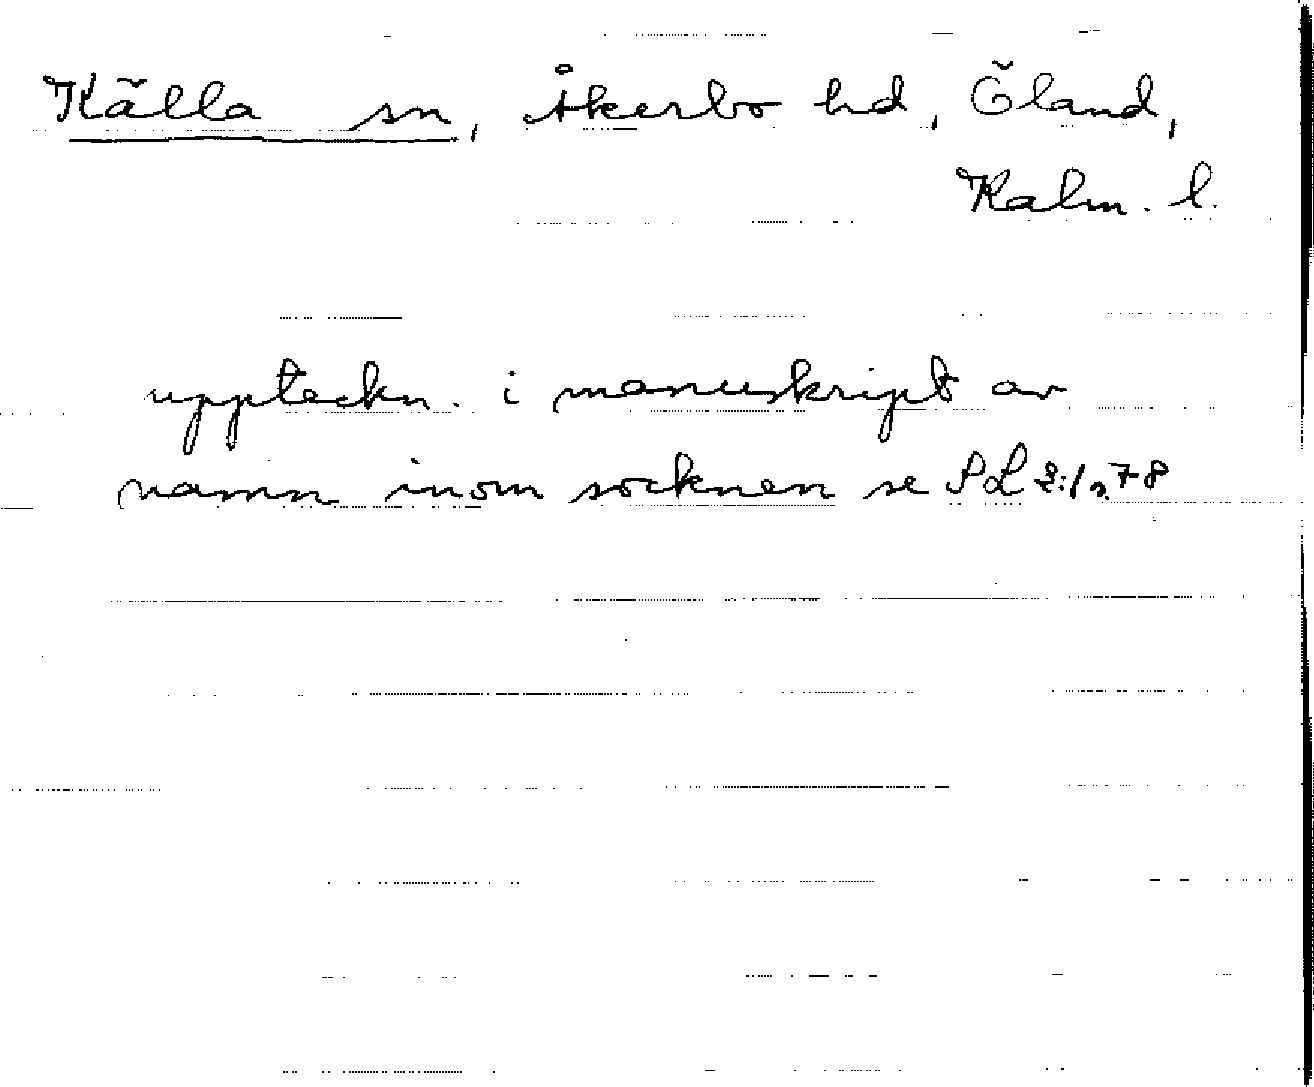 Källa sn, Åkerbo hd, Öland,
Kalm. l.
uppteckn. i manuskript av
namn inom socknen se SL 2:1 s. 78